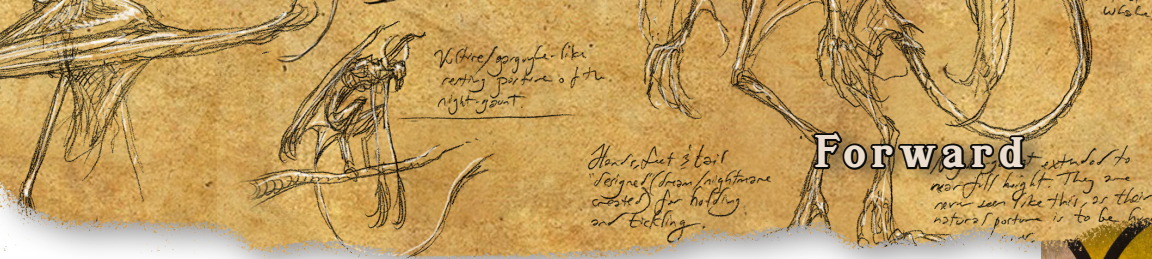 Vulture/gargoyle-like
resting posture of the
night-gaunt.
Hands, feet & tail
designed (dream/nightmare
created) for holding
and tickling.
Forward
extended to
near full height. They are
never seen like this, as their
natural posture is to be